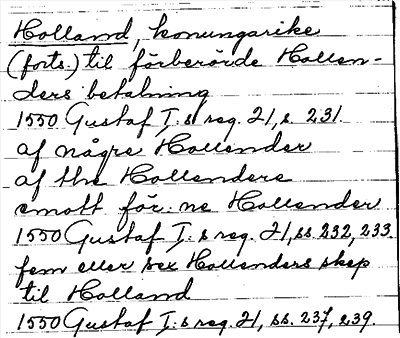 Holland, konungarike
(forts.) til förberörde Hollen-
ders betalning
1550 Gustaf I:s reg. 21, s. 231.
af någre Hollender
af the Hollenders
emott för:ne Hollender
1550 Gustaf I:s reg. 21, ss. 232, 233.
fem eller sex Hollenders skep
til Holland
1550 Gustaf I:s reg. 21, ss. 237, 239.